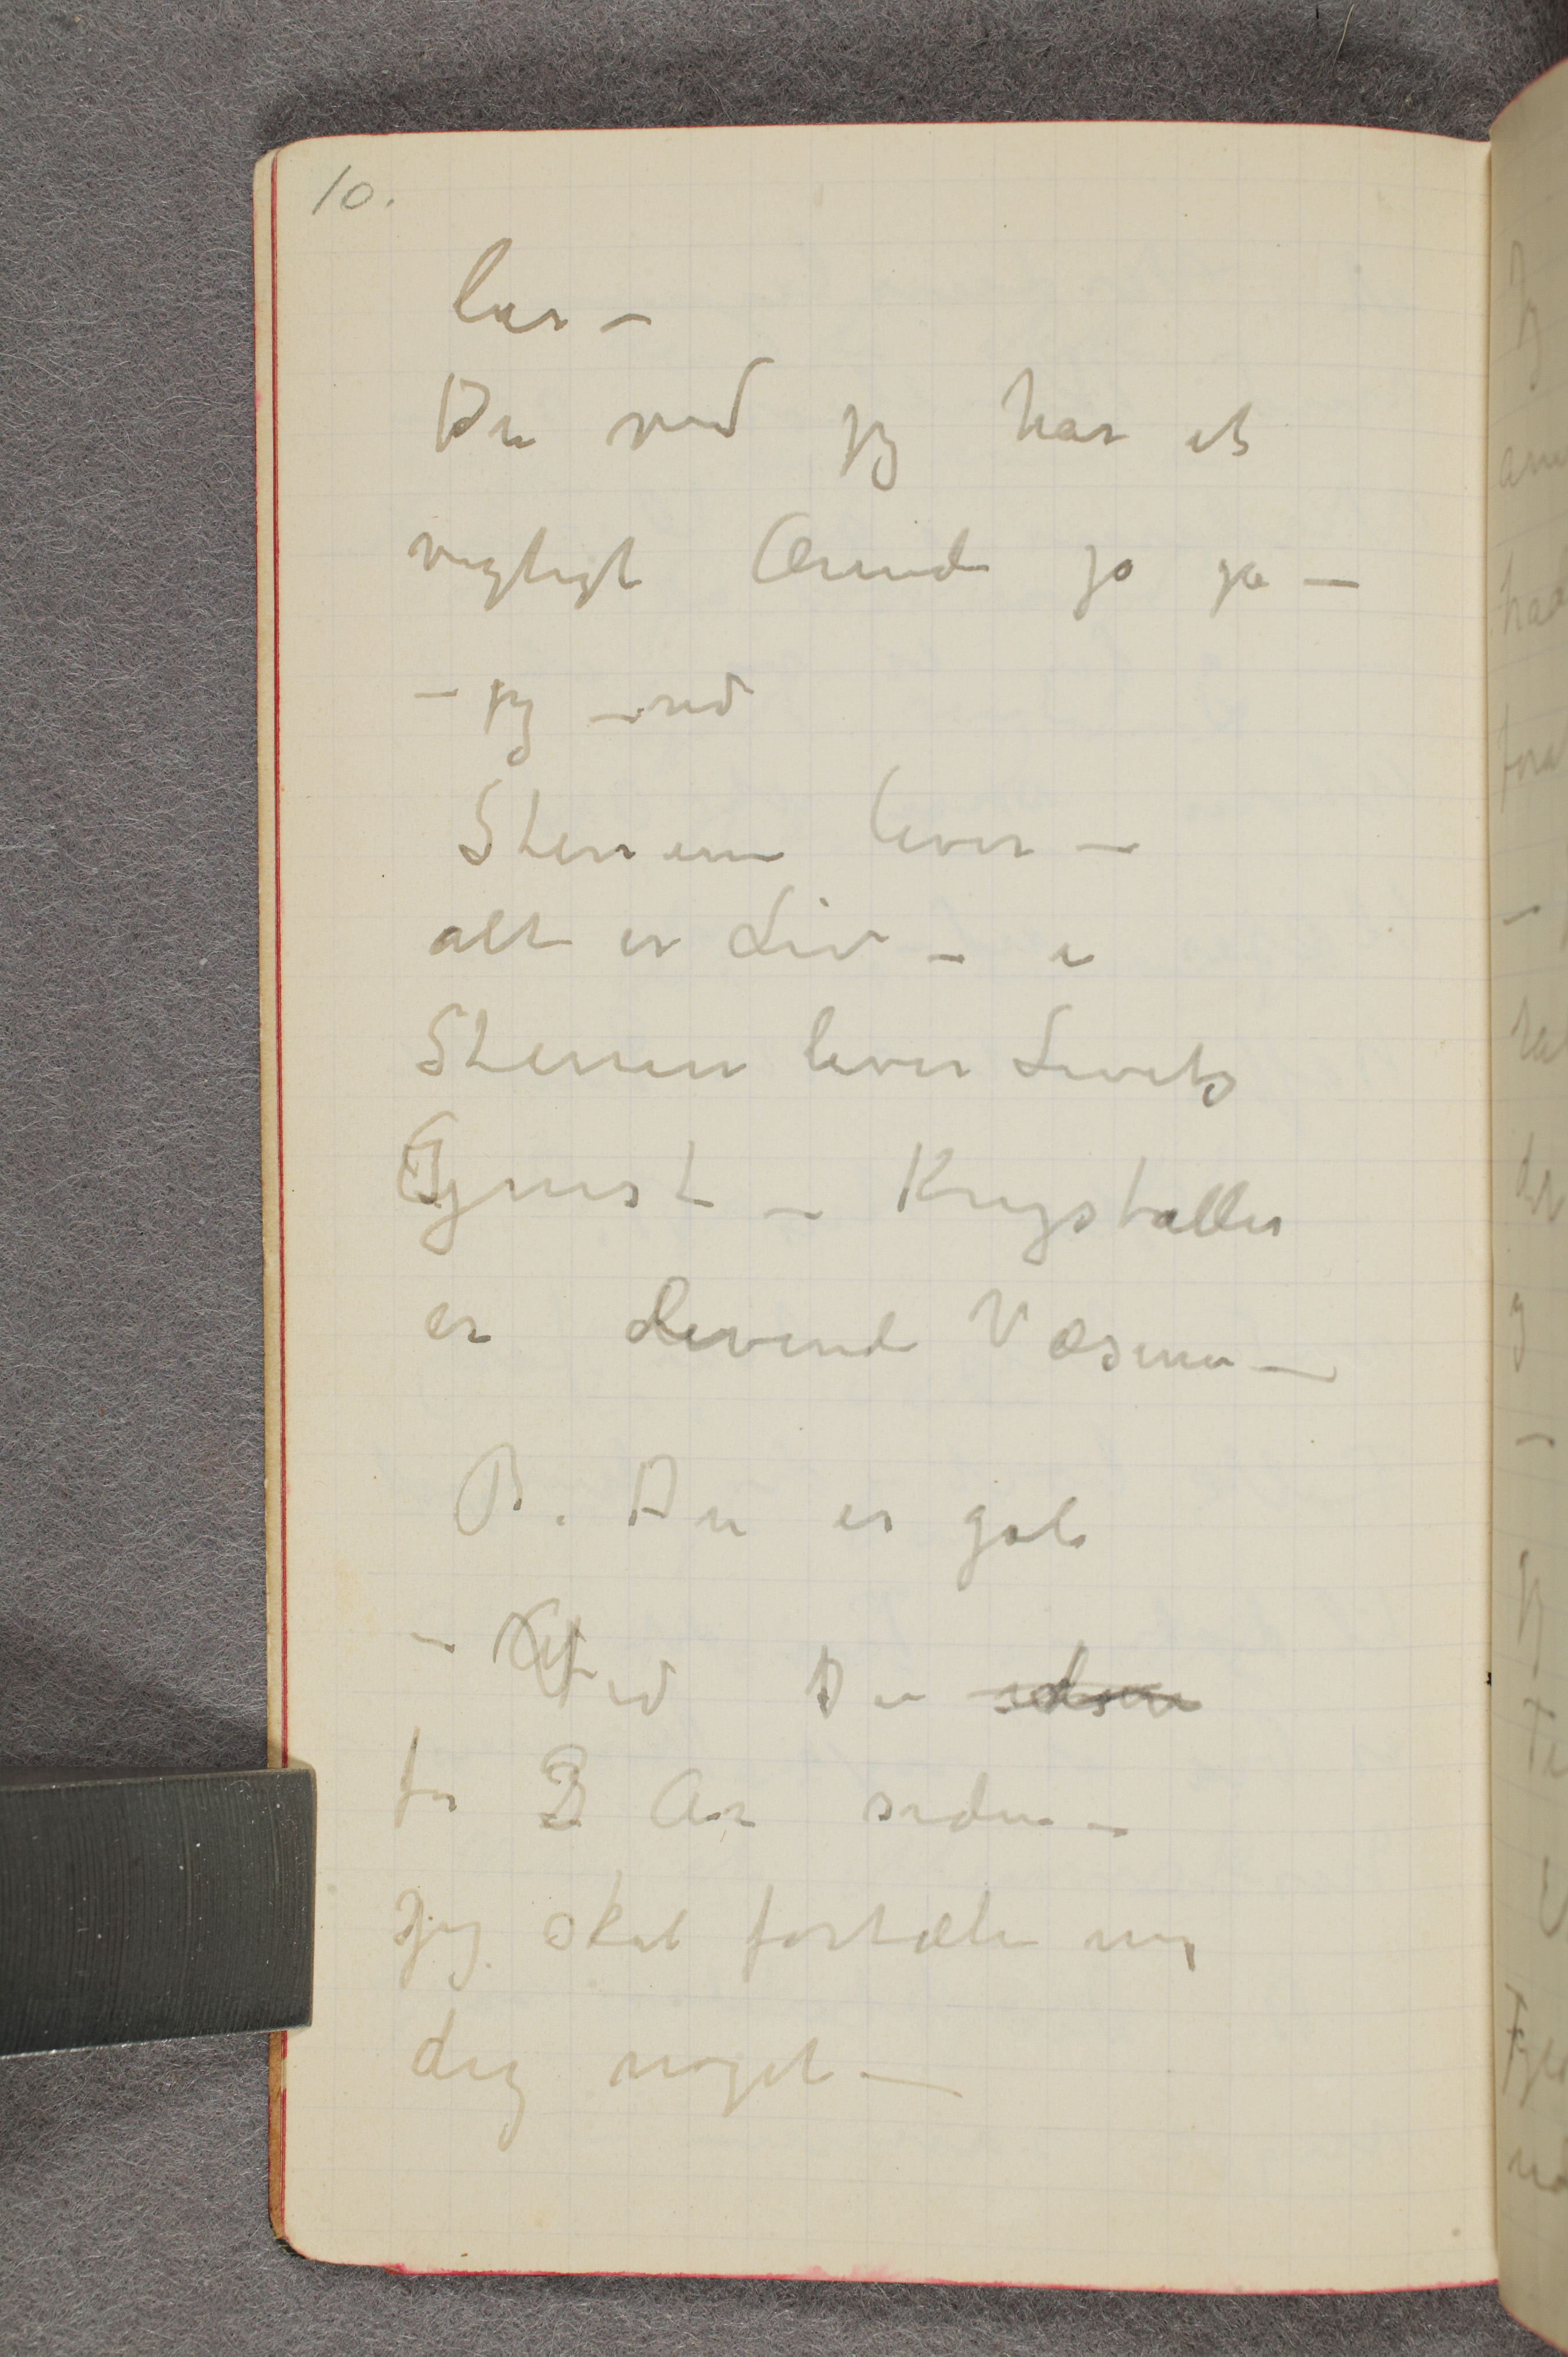 10.
lar –
Du ved jeg har et
vigtigt Ærinde ja ja –
– jeg ved
Stenene lever –
alt er Liv – i
Stenene lever Livets
Gjnist – Krystaller
er Levende Væsener –
B. Du er gal
– Ved Du
for 2 Aar siden –
Jeg skal fortælle
dig noget –